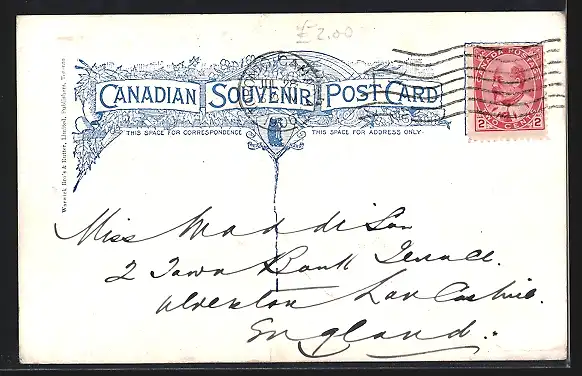 £ 2.00
CANADIAN SOUVENIR POST CARD
THIS SPACE FOR CORRESPONDENCE
THIS SPACE FOR ADDRESS ONLY
Warwick Bro's & Rutter, Limited, Publishers, Toronto
CANADA POSTAGE
2 CENTS 2
Miss Maddison
2 Town Bank Terrace.
Ulverston Lancashire.
England.